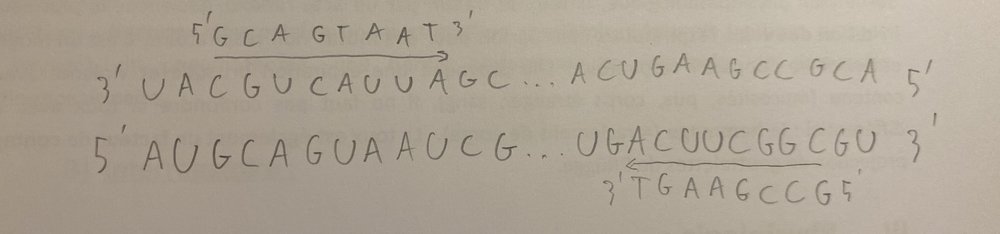 5' G C A G T A A T 3'
3' U A C G U C A U U A G C ... A C U G A A G C C G C A 5'
5' A U G C A G U A A U C G ... U G A C U U C G G C G U 3'
3' T G A A G C C G 5'